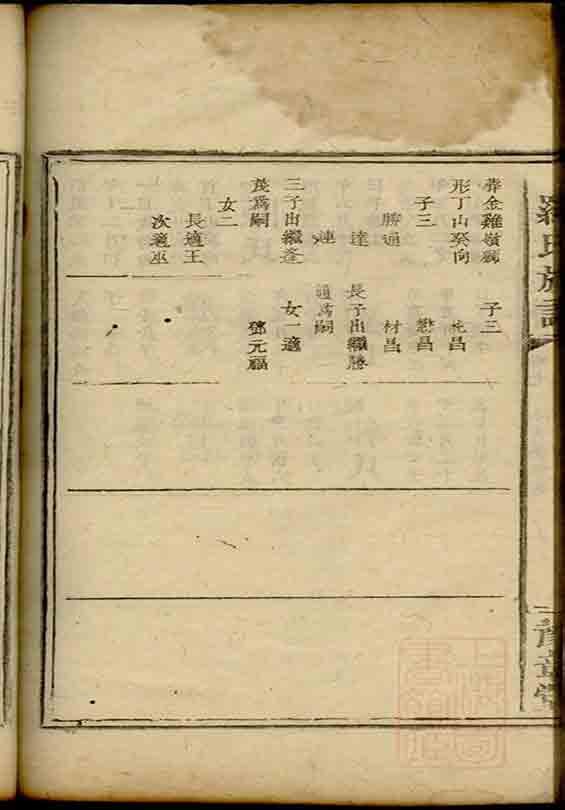 葬金雞嶺獅
形丁山癸向
子三
勝通
達
連
三子出繼逢
茂爲嗣
女二
長適王
次適巫
子三
昌
懋昌
材昌
長子出繼勝
通爲嗣
女一適
鄧元福
羅氏族譜
豫章堂